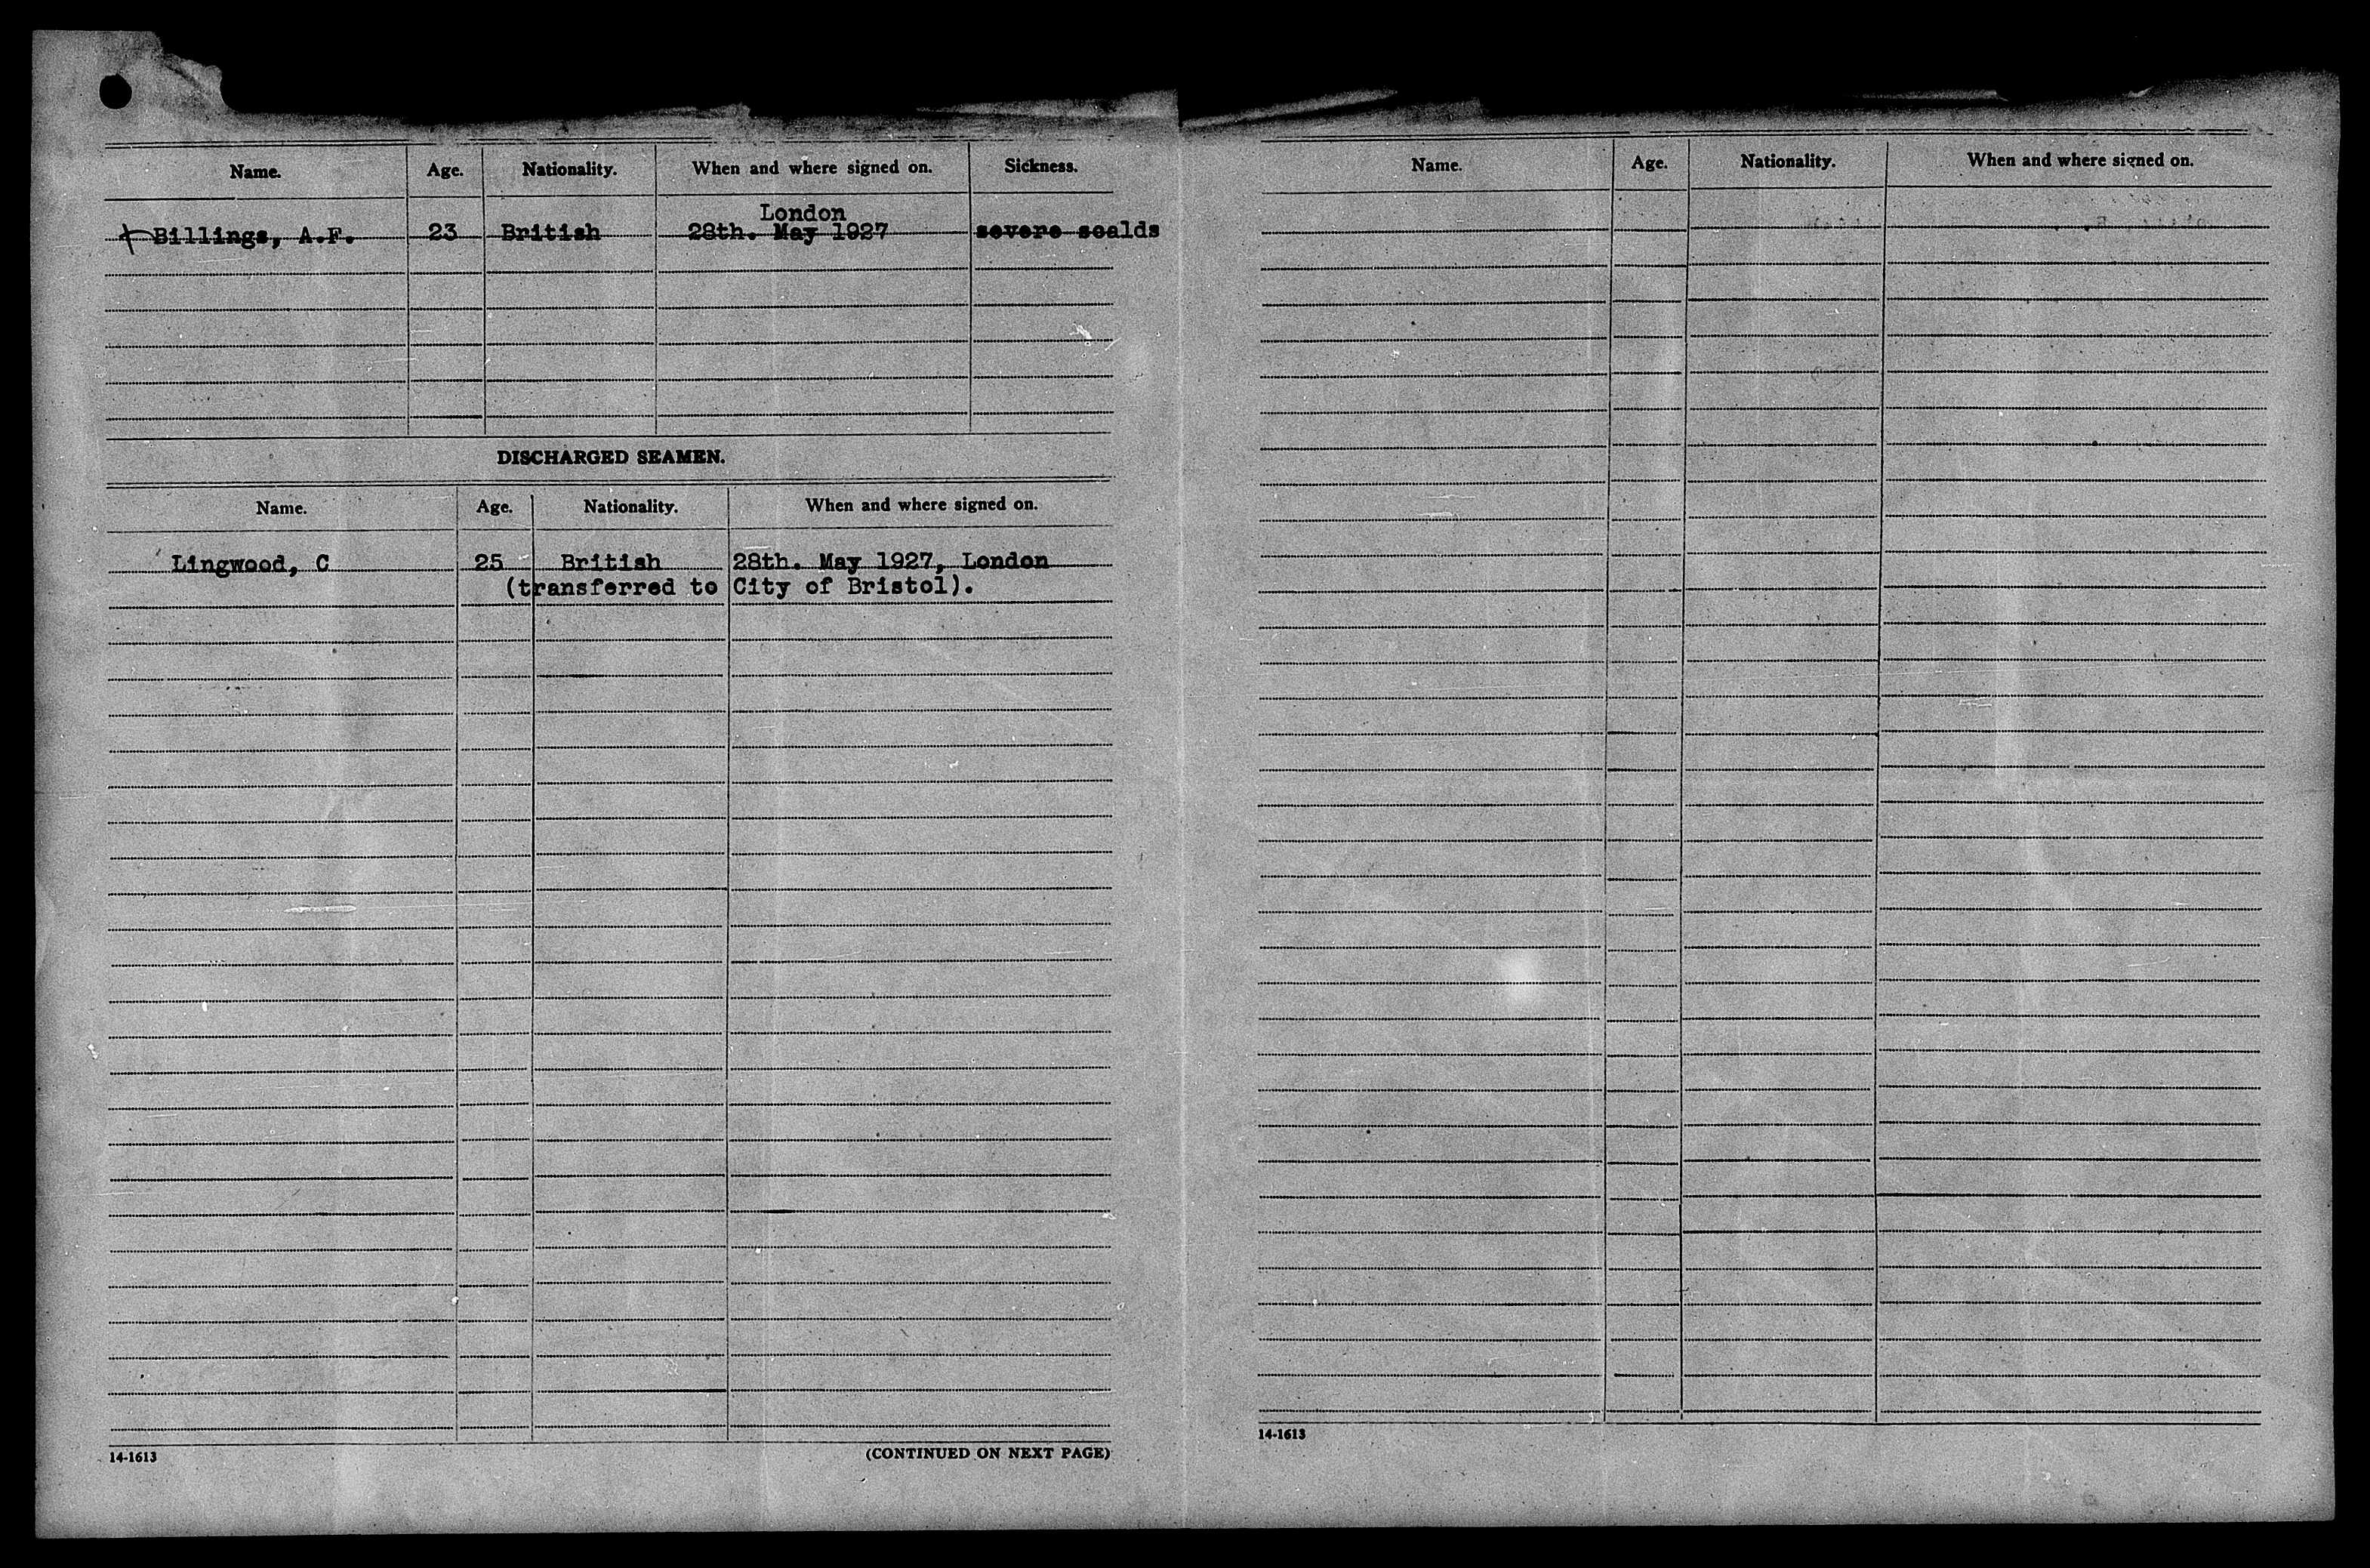 Name. Age. Nationality. When and where signed on. Sickness.
London
Billings, A.F. 23 British 28th. May 1927 severe scalds
DISCHARGED SEAMEN.
Name. Age. Nationality. When and where signed on.
Lingwood, C 25 British 28th. May 1927, London
(transferred to City of Bristol).
14-1613 (CONTINUED ON NEXT PAGE)
Name. Age. Nationality. When and where signed on.
14-1613